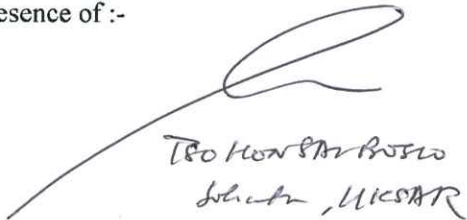 esence of :-
TSO HON SAI BOSCO
Solicitor, HKSAR